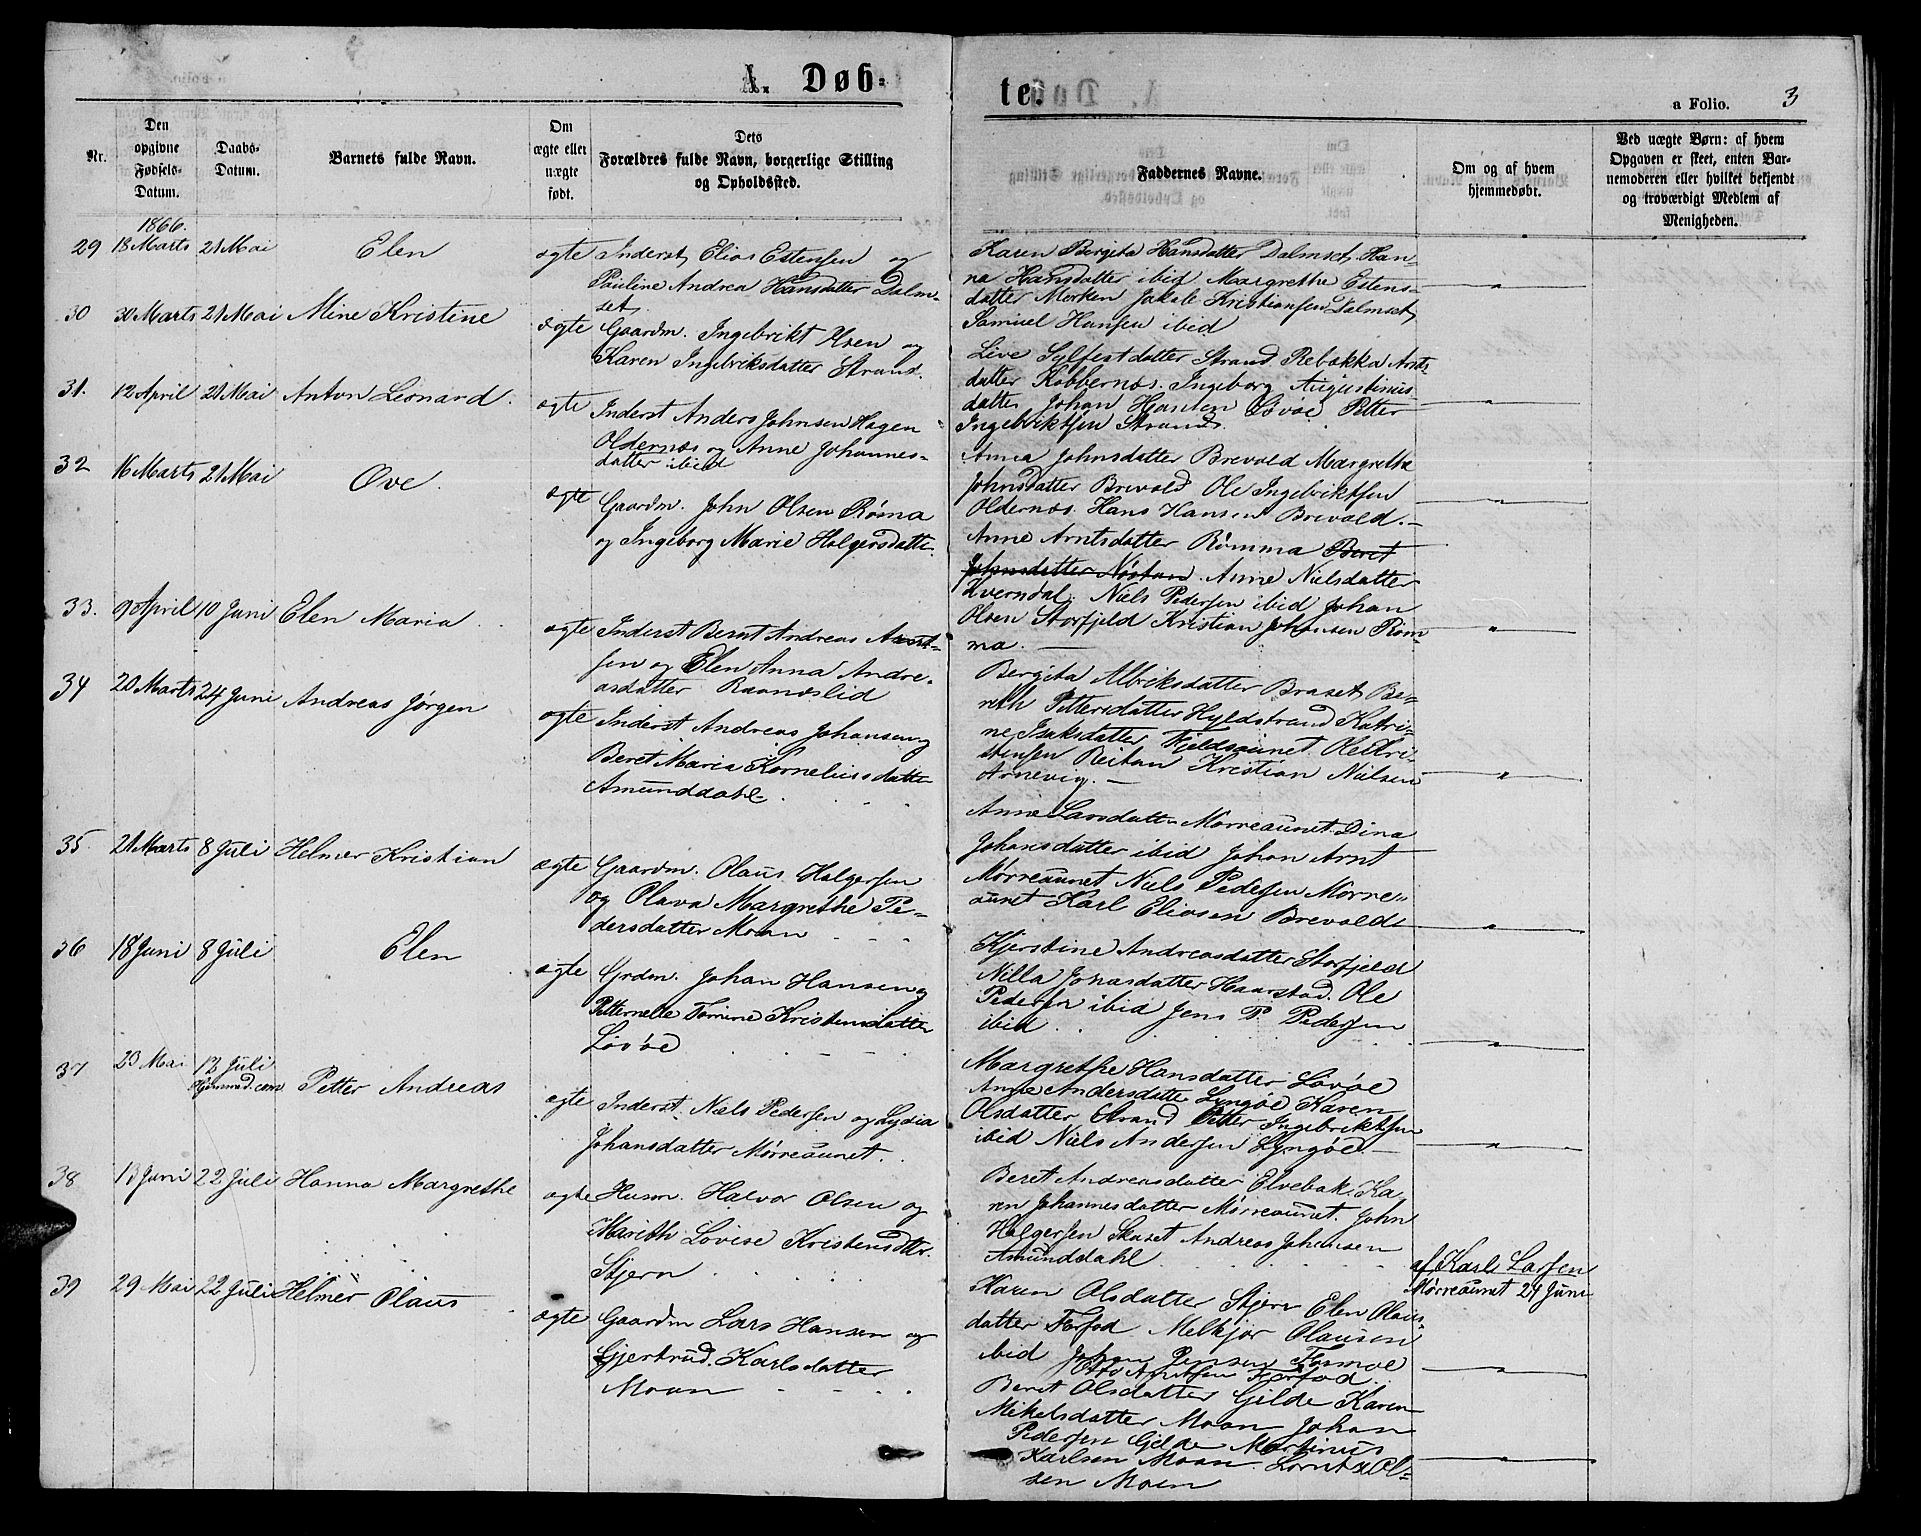 A. Døb-
te.
a Folio. 3
Nr.
Den
opgivne
Fødsels-
Datum.
Daabs-
Datum.
Barnets fulde Navn.
Om
ægte eller
uægte
født.
Dets
Forældres fulde Navn, borgerlige Stilling
og Opholdssted.
Faddernes Navne.
Om og af hvem
hjemmedøbt.
Ved uægte Børn: af hvem
Opgaven er skeet, enten Bar-
nemoderen eller hvilket bekjendt
og troværdigt Medlem af
Menigheden.
1866.
29 18 Marts 21 Mai Elen ægte Inderst Elias Estensen og
Pauline Andrea Hansdatter Dalm-
set
Karen Bergita Hansdatter Dalmset Han-
ne Hansdatter ibid Margrethe Estens-
datter Morken Jakob Kristiansen Dalmset
Samuel Hansen ibid
30 30 Marts 21 Mai Mine Kristine ægte Gaardm. Ingebrikt Olsen og
Karen Ingebriksdatter Strand.
Live Sylfestdatter Strand Rebekka Arnts-
datter Kobbernæs. Ingeborg Augustinus-
datter Johan Hansen Løvøe Petter
Ingebriktsen Strand.
31. 12 April 21 Mai Anton Leonard. ægte Inderst Anders Johnsen Hagen
Oldernæs og Anne Johannes-
datter ibid
Anna Johnsdatter Brevold Margrethe
Johnsdatter Brevold Ole Ingebriktsen
Oldernæs. Hans Hansen Brevold.
32 16 Marts 21 Mai Ove. ægte Gaardm. John Olsen Røma
og Ingeborg Marie Holgersdatter
Anne Arntsdatter Rømma Beret
Johnsdatter Nøstan. Anne Nielsdatter
Kverndal. Niels Pedersen ibid Johan
Olsen Storfjeld Kristian Johansen Røm-
ma.
33. 9 April 10 Juni Elen Maria ægte Inderst Bernt Andreas Arnt-
sen og Elen Anna Andre-
asdatter Raanæslid
Bergita Albriksdatter Braset Be-
reth Pettersdatter Hyldstrand Katri-
ne Isaksdatter Fjeldsaunet. Ole Kri-
stensen Reitan Kristian Nielsen
Arnevig.
34 20 Marts 24 Juni Andreas Jørgen ægte Inderst. Andreas Johansen og
Beret Maria Korneliusdatter
Amunddahl.
Anne Larsdatter Mørreaunet. Dina
Johansdatter ibid Johan Arnt
Mørreaunet Niels Pedersen Mørre-
aunet Karl Eliasen Brevold
35 21 Marts 8 Juli Helmer Kristian ægte Gaardm. Olaus Holgersen
og Olava Margrethe Pe-
dersdatter Moan
Kjerstine Andreasdatter Storfjeld
Nilla Jonasdatter Haarstad. Ole
Pedersen ibid Jens P. Pedersen
ibid.
36 18 Juni 8 Juli Elen ægte Grdm. Johan Hansen og
Petternelle Tomine Kristensdatter
Løvøe
Margrethe Hansdatter Løvøe
Anne Andersdatter Lyngøe Karen
Olsdatter Strand Petter Ingebriktsen
ibid Niels Andersen Lyngøe.
37 23 Mai 12 Juli Petter Andreas ægte Inderst. Niels Pedersen og Lydia
Johansdatter Mørreaunet.
Beret Andreasdatter Elvebak. Ka-
ren Johannesdatter Mørreaunet. John
Holgersen Skaset Andreas Johansen
Amunddahl
af Karl Larsen
Mørreaunet 24 Juni
38 13 Juni 22 Juli Hanna Margrethe ægte Husm. Halvor Olsen og
Marith Lovise Kristensdttr.
Stjern
Karen Olsdatter Stjern Elen Olaus-
datter Forfod Melkjør Olausen
ibid Johan Jensen Formoe
Otto Arntsen Forfod.
39 29 Mai 22 Juli Helmer Olaus ægte Gaardm Lars Hansen og
Gjertrud. Karlsdatter
Moan
Beret Olsdatter Gilde Karen
Mikelsdatter Moan Johan
Pedersen Gilde Martinus
Karlsen Moan. Lorntz Ol-
sen Moen